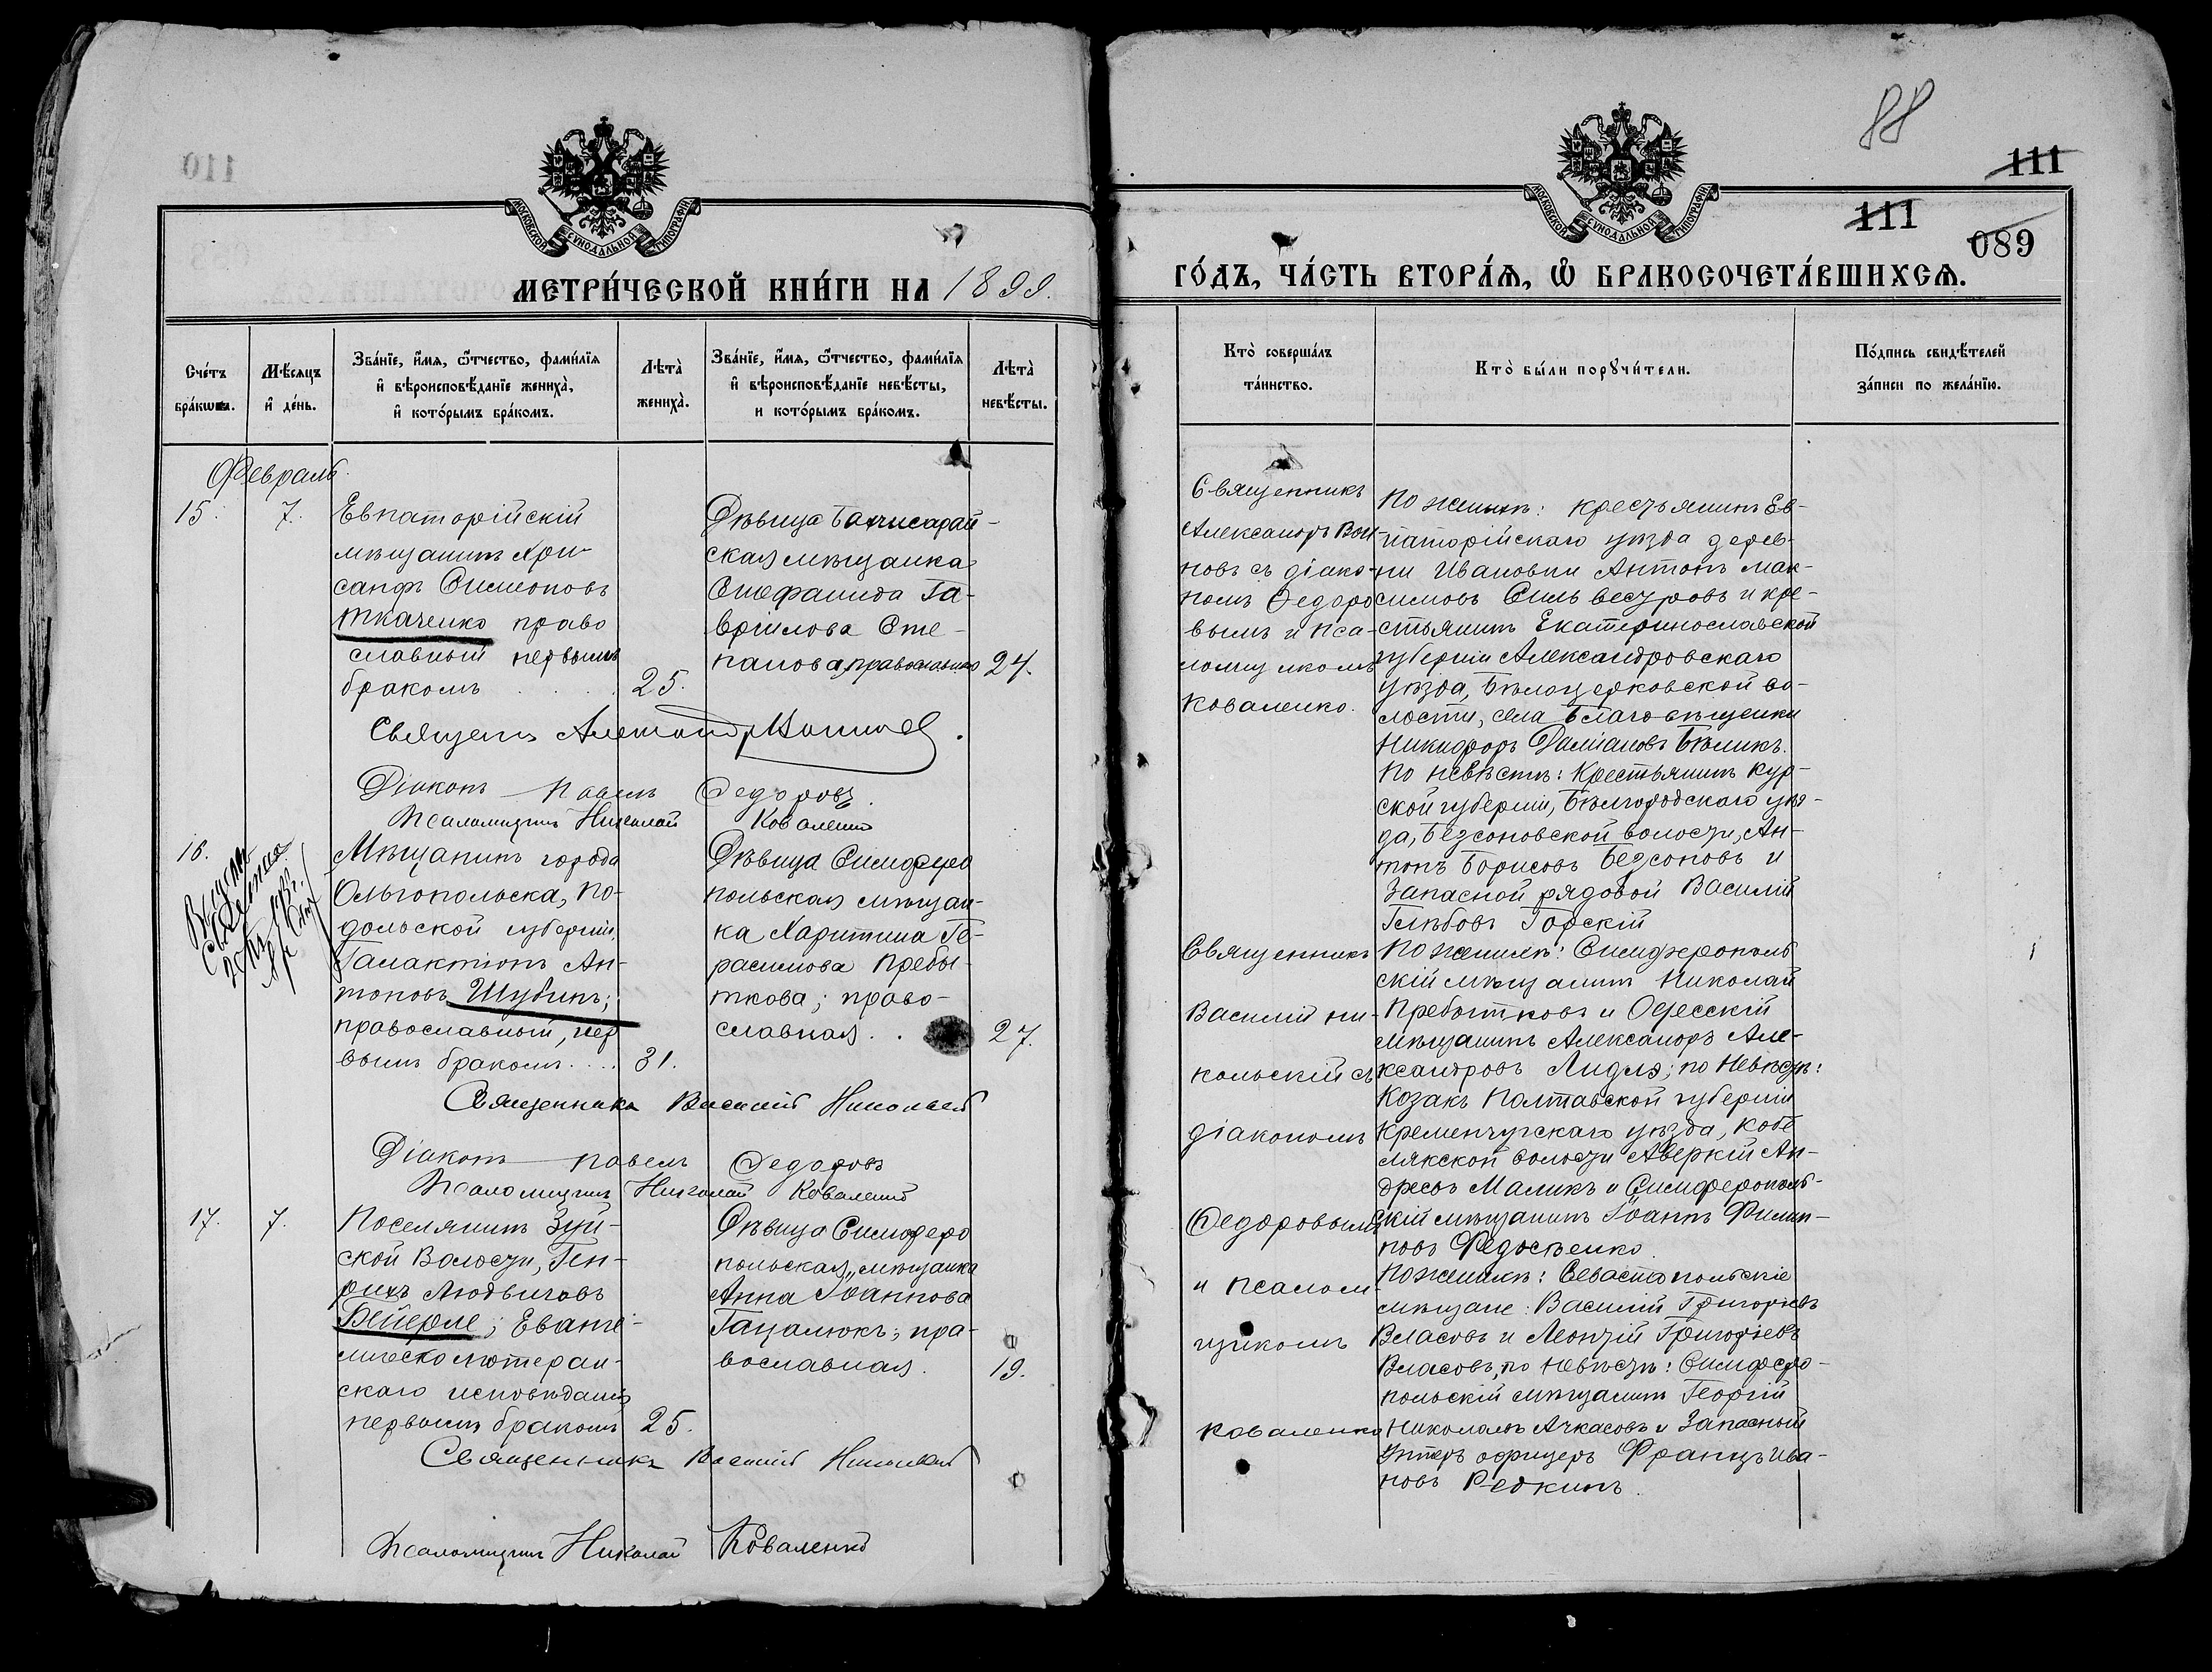 110
МОСКОВСКОЙ СѴНОДАЛЬНОЙ ТИПОГРАФІИ
МЕТРИ́ЧЕСКОЙ КНИ́ГИ НА 1899.
Сче́тъ бра́кωвъ.
Мѣ́сяцъ и҆ де́нь.
Зва́нїе, и҆́мѧ, ѻ҆́тчество, фами́лїѧ и҆ вѣроисповѣ́данїе жениха̀, и҆ кото́рымъ бра́комъ.
Лѣта̀ жениха̀.
Зва́нїе, и҆́мѧ, ѻ҆́тчество, фами́лїѧ и҆ вѣроисповѣ́данїе невѣ́сты, и кото́рымъ бра́комъ.
Лѣта̀ невѣ́сты.
Февраль.
15. 7.
Евпаторійскій
мѣщанинъ Хри-
санфъ Симеоновъ
Ткаченко право
славный первымъ
бракомъ 25.
Дѣвица Бахчисарай-
ская мѣщанка
Епифанида Га-
вріилова Сте-
панова, православная 24.
Священ. Александръ
Діаконъ Павелъ Федоровъ.
Псаломщикъ Николай Коваленко
16.
Мѣщанинъ города
Ольгопольска, По-
дольской губерніи,
Галактіонъ Ан-
тоновъ Шубинъ;
православный, пер
вымъ бракомъ.... 31.
Дѣвица Симферо
польская мѣщан-
ка Харитина Ге-
расимова Пребы-
ткова; право-
славная . . 27.
Священникъ Василій Никольскій
Діаконъ Павелъ Федоровъ
Псаломщикъ Николай Коваленко
17. 7.
Поселянинъ Зуй-
ской Волости, Ген-
рихъ Людвиговъ
Бейерле; Еванге-
лическо лютеран-
скаго исповѣданія
первымъ бракомъ 25.
Дѣвица Симферо
польская мѣщанка
Анна Іоаннова
Гацалюкъ; пра-
вославная. 19.
Священникъ Василій Никольскій
Псаломщикъ Николай Коваленко
88
111
111
089
МОСКОВСКОЙ СѴНОДАЛЬНОЙ ТИПОГРАФІИ
ГО́ДЪ, ЧА́СТЬ ВТОРА́Ѧ, Ѡ҆ БРАКОСОЧЕТА́ВШИХСѦ.
Кто̀ соверша́лъ та́инство.
Кто̀ бы́ли порꙋчи́тели.
По́дпись свидѣ́телей за́писи по жела́нїю.
Священникъ
Александръ
новъ съ діако-
номъ Федоро
вымъ и пса-
ломщикомъ
Коваленко.
По женихѣ: крестьянинъ Ев-
паторійскаго уѣзда дерев-
ни Ивановки Антонъ Мак-
симовъ Сильвестровъ и кре-
стьянинъ Екатеринославской
губерніи Александровскаго
уѣзда, Бѣлоцерковской во-
лости, села Благовѣщенки
Никифоръ Даміановъ Бѣликъ.
По невѣстѣ: Крестьянинъ Кур-
ской губерніи, Бѣлгородскаго уѣз-
да, Безсоновской волости, Ан-
тонъ Борисовъ Безсоновъ и
Запасной рядовой Василій
Глѣбовъ Горскій
Священникъ
Василій Ни-
кольскій съ
діакономъ
Федоровымъ
и псалом-
щикомъ
Коваленко
По женихѣ: Симферополь
скій мѣщанинъ Николай
Пребытковъ и Одесскій
мѣщанинъ Александръ Але-
ксандровъ Лидлэ; по Невѣстѣ:
Козакъ Полтавской губерніи
Кременчугскаго уѣзда, Кобе
лякской волости Аверкій Ан-
дреевъ Маликъ и Симферополь-
скій мѣщанинъ Іоаннъ Филип-
повъ Федосѣенко.
По женихѣ: Севастопольскіе
мѣщане: Василій Григорьевъ
Власовъ и Леонтій Григорьевъ
Власовъ, по Невѣстѣ: Симферо-
польскій мѣщанинъ Георгій
Николаевъ Ачкасовъ и Запасный
Унтеръ офицеръ Францъ Ива-
новъ Редкинъ.